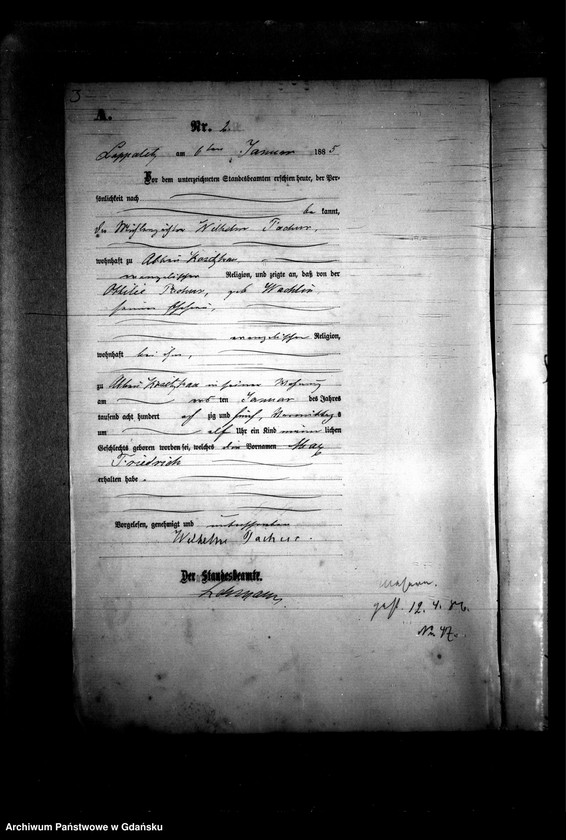 3
A.
Nr. 2.
am 6ten Januar 1885
Vor dem unterzeichneten Standesbeamten erschien heute, der Per-
sönlichkeit nach
be kannt,
der Wilhelm Pachur,
wohnhaft zu
evangelischer Religion, und zeigte an, daß von der
Ottilie Pachur, geb. Wachlin
seiner Ehefrau,
evangelischer Religion,
wohnhaft bei ihm,
zu in seiner Wohnung
am ten Januar des Jahres
tausend acht hundert acht zig und fünf, Vormittag s
um elf Uhr ein Kind männ lichen
Geschlechts geboren worden sei, welches die Vornamen Max
Friedrich
erhalten habe.
Vorgelesen, genehmigt und unterschrieben
Wilhelm Pachur.
Der Standesbeamte.
gest. 12. 4. 86.
No. 47.
Archiwum Państwowe w Gdańsku